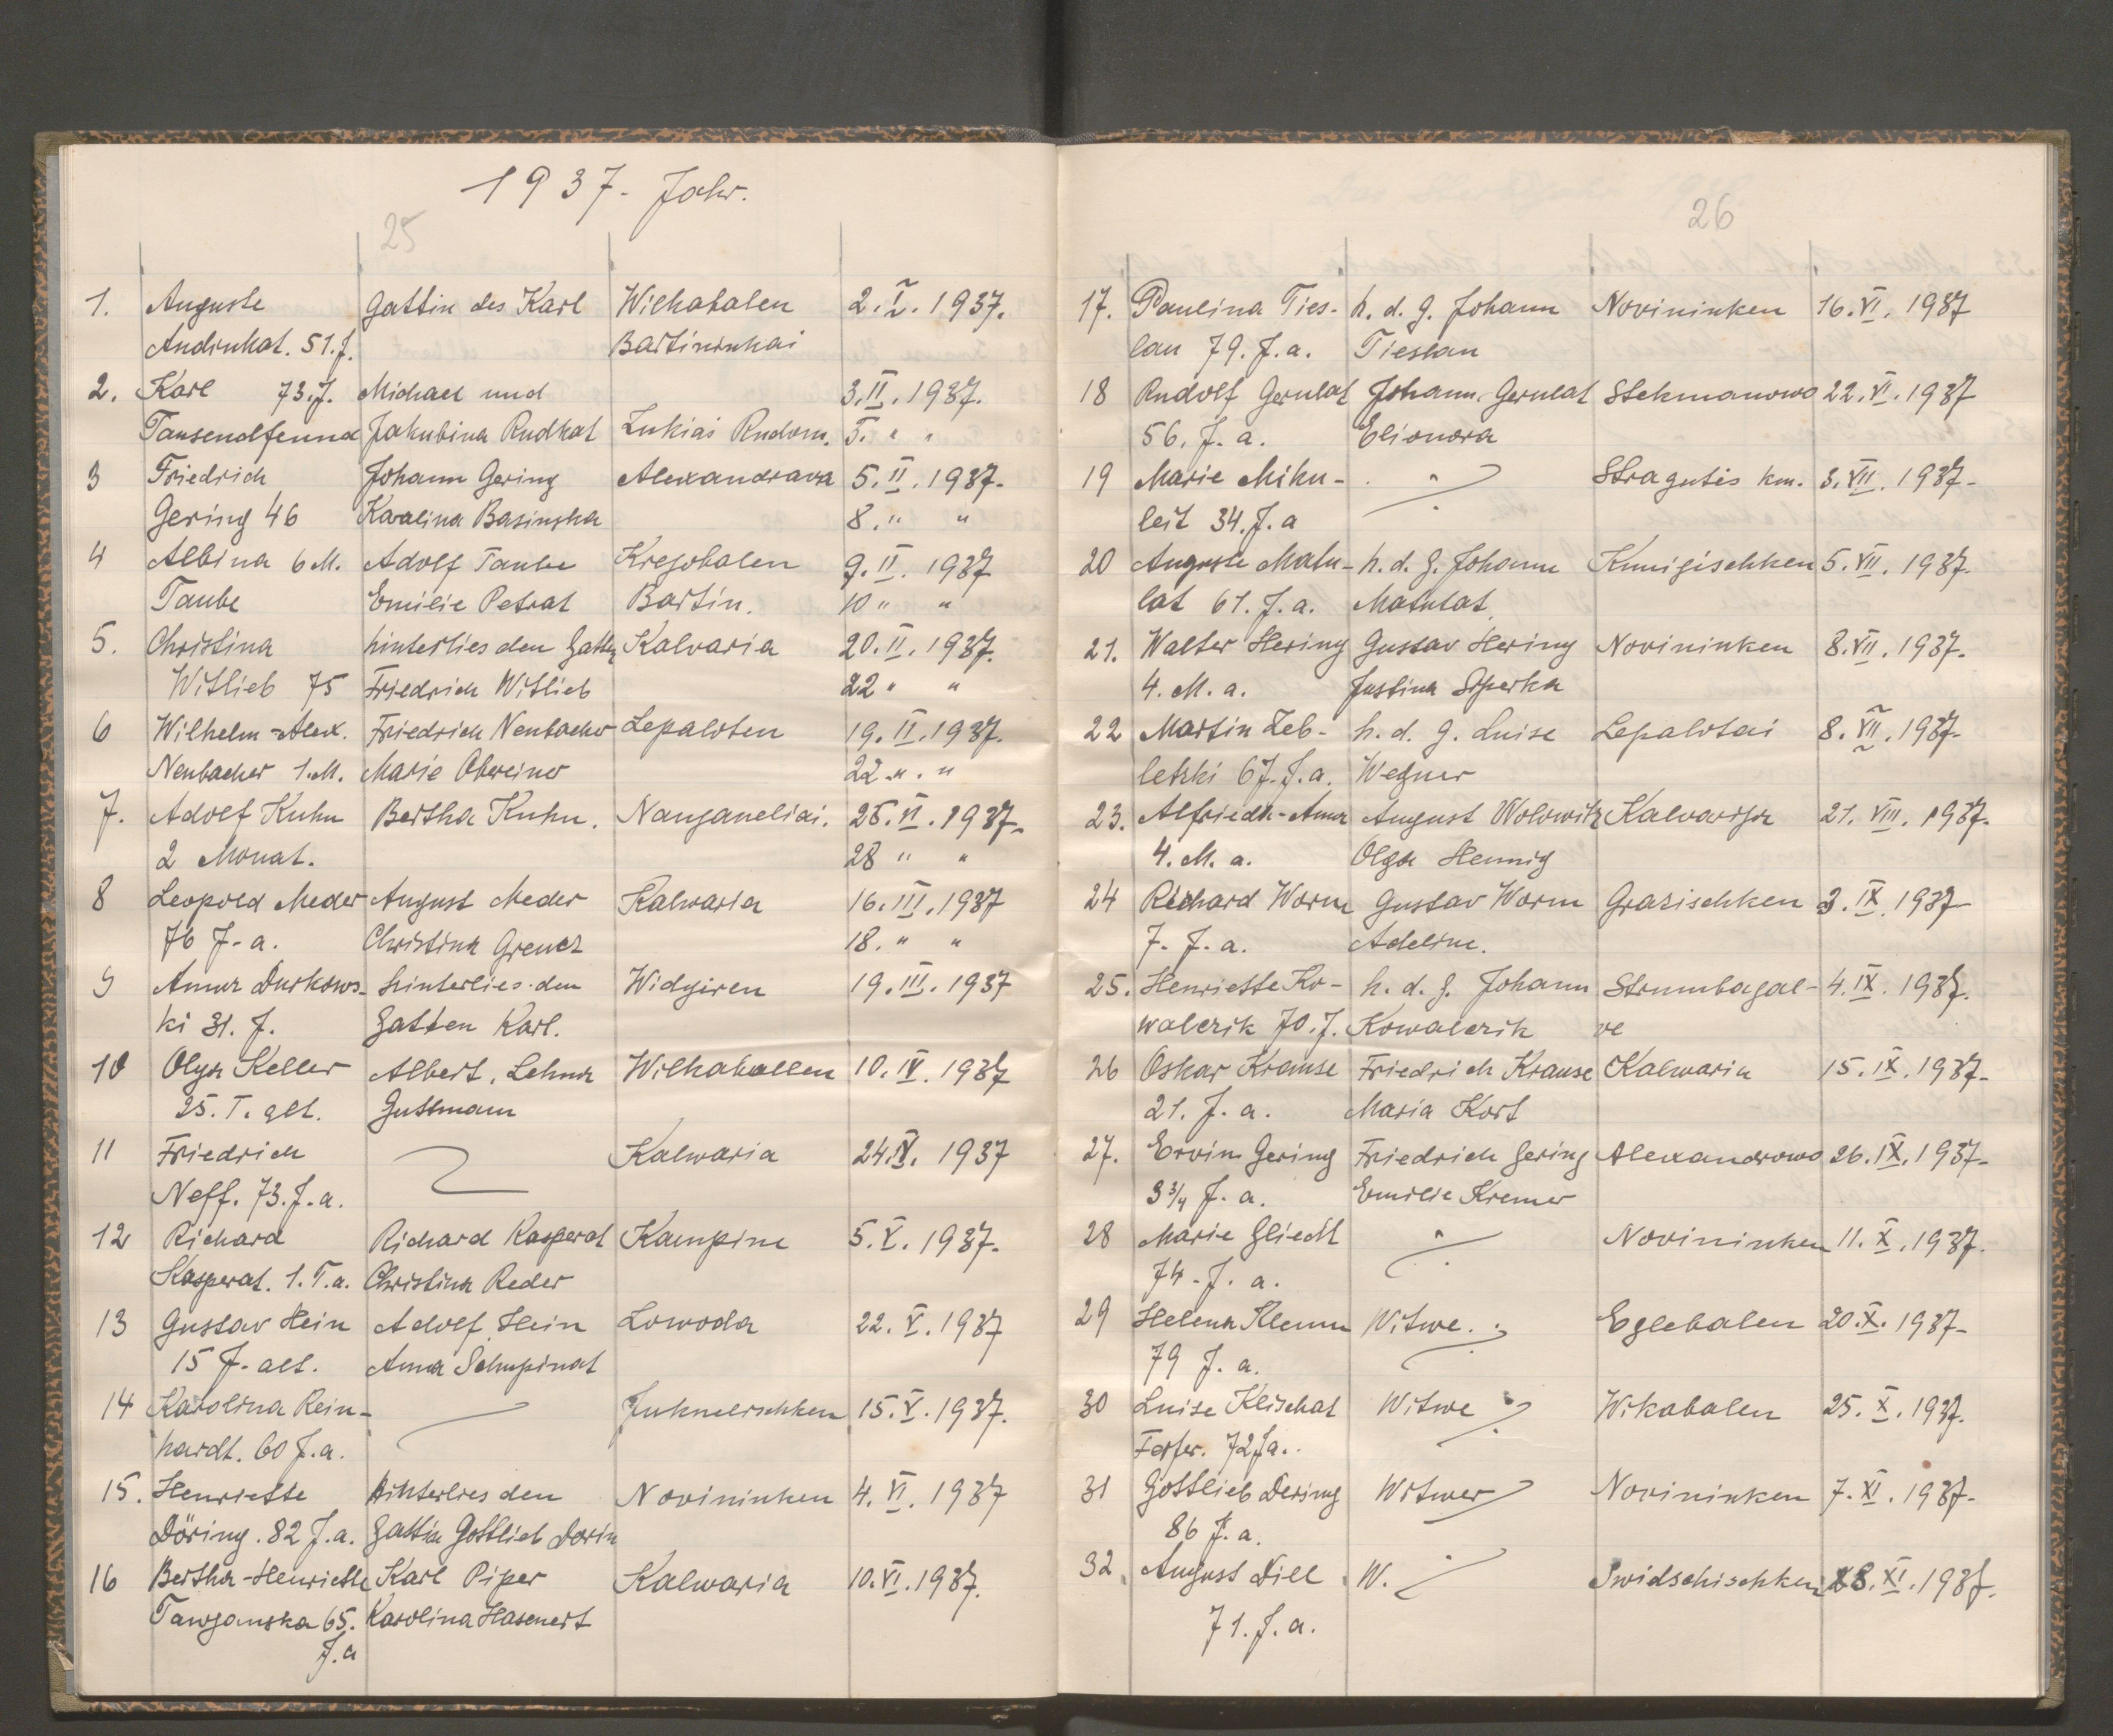 1937. Jahr.
25
1. Auguste Gattin des Karl Wilkabalen 2. I. 1937.
Andinkat. 51. J. Bartininkai
2. Karl 73. J. Michael und 3. II. 1937.
Tausendfeund Jakubina Rudkat Lukiai Rudom. 5. " "
3 Friedrich Johann Gering Alexandrava 5. II. 1937.
Gering 46 Karalina Basinska 8. " "
4 Albina 6 M. Adolf Taube Kregobalen 9. II. 1937
Taube Emilie Petrat Bartin. 10 " "
5. Christina hinterlies den Gatten Kalvaria 20. II. 1937.
Witlieb 75 Friedrich Witlieb 22 " "
6 Wilhelm-Alex. Friedrich Neubacher Lepaloten 19. II. 1937.
Neubacher 1. M. Marie Obereiner 22. " "
7. Adolf Kuhn Bertha Kuhn. Naujaneliai. 1937.
2 Monat. 28 " "
8 Leopold Meder August Meder Kalwaria 16. III. 1937
76 J. a. Christina 18. " "
9 Anna Durkows- hinterlies den Widgiren 19. III. 1937
ki 31. J. Gatten Karl.
10 Olga Keller Albert, Lehna Wilkaballen 10. IV. 1937
25. T. alt. Guttmann
11 Friedrich Kalwaria 24. IV. 1937
Neff. 73. J. a.
12 Richard Richard Kasperat Kampine 5. V. 1937.
Kasperat. 1. T. a. Christina Reder
13 Gustav Hein Adolf Hein Lowoda 22. V. 1937
15 J. alt. Anna Schupinat
14 Karolina Rein- Juknelischken 15. V. 1937.
hardt. 60 J. a.
15. Henriette Hinterlies den Novininken 4. VI. 1937
Döring. 82 J. a. Gattin Gottlieb Dorin
16 Bertha-Henriette Karl Piper Kalwaria 10. VI. 1937.
65. Karolina Hasenert
J. a
26
17. Paulina Ties- h. d. G. Johann Novininken 16. VI. 1937
lau 79. J. a. Tieslau
18 Rudolf Gerulat Johann Gerulat Stekmanowo 22. VI. 1937
56. J. a. Elionora
19 Marie Miku- " Stragutis km. 3. VII. 1937-
leit 34. J. a
20 Auguste Matu- h. d. G. Johann Kunigischken 5. VII. 1937.
lat 61. J. a. Matulat
21. Walter Hering Gustav Hering Novininken 8. VII. 1937.
4. M. a. Justina Siperka
22 Martin Zeb- h. d. G. Luise Lepalotai 8. VII. 1937-
letzki 67. J. a. Wegner
23. Alfriede-Anna August Wolowitz Kalvarija 21. VIII. 1937.
4. M. a. Olga Hennig
24 Richard Worm Gustav Worm Grasischken 3. IX. 1937
7. J. a. Adeline.
25. Henriette Ko- h. d. G. Johann Strumbagal- 4. IX. 1937.
walczik 70. J. Kowalczik ve
26 Oskar Krause Friedrich Krause Kalwaria 15. IX. 1937-
21. J. a. Maria Kort
27. Ervin Gering Friedrich Gering Alexandrowo 26. IX. 1937-
3 3/4 J. a. Emilie Kremer
28 Marie Gliedt " Novininken 11. X. 1937.
74. J. a.
29 Helena Klemm Witwe. Eglebalen 20. X. 1937-
79 J. a.
30 Luise Klischat Witwe Wikabalen 25. X. 1937.
72 J a.
31 Gottlieb Dering Witwer Novininken 7. XI. 1937-
86 J. a.
32. August Dill W. Swidschischken XI. 1937.
71. J. a.